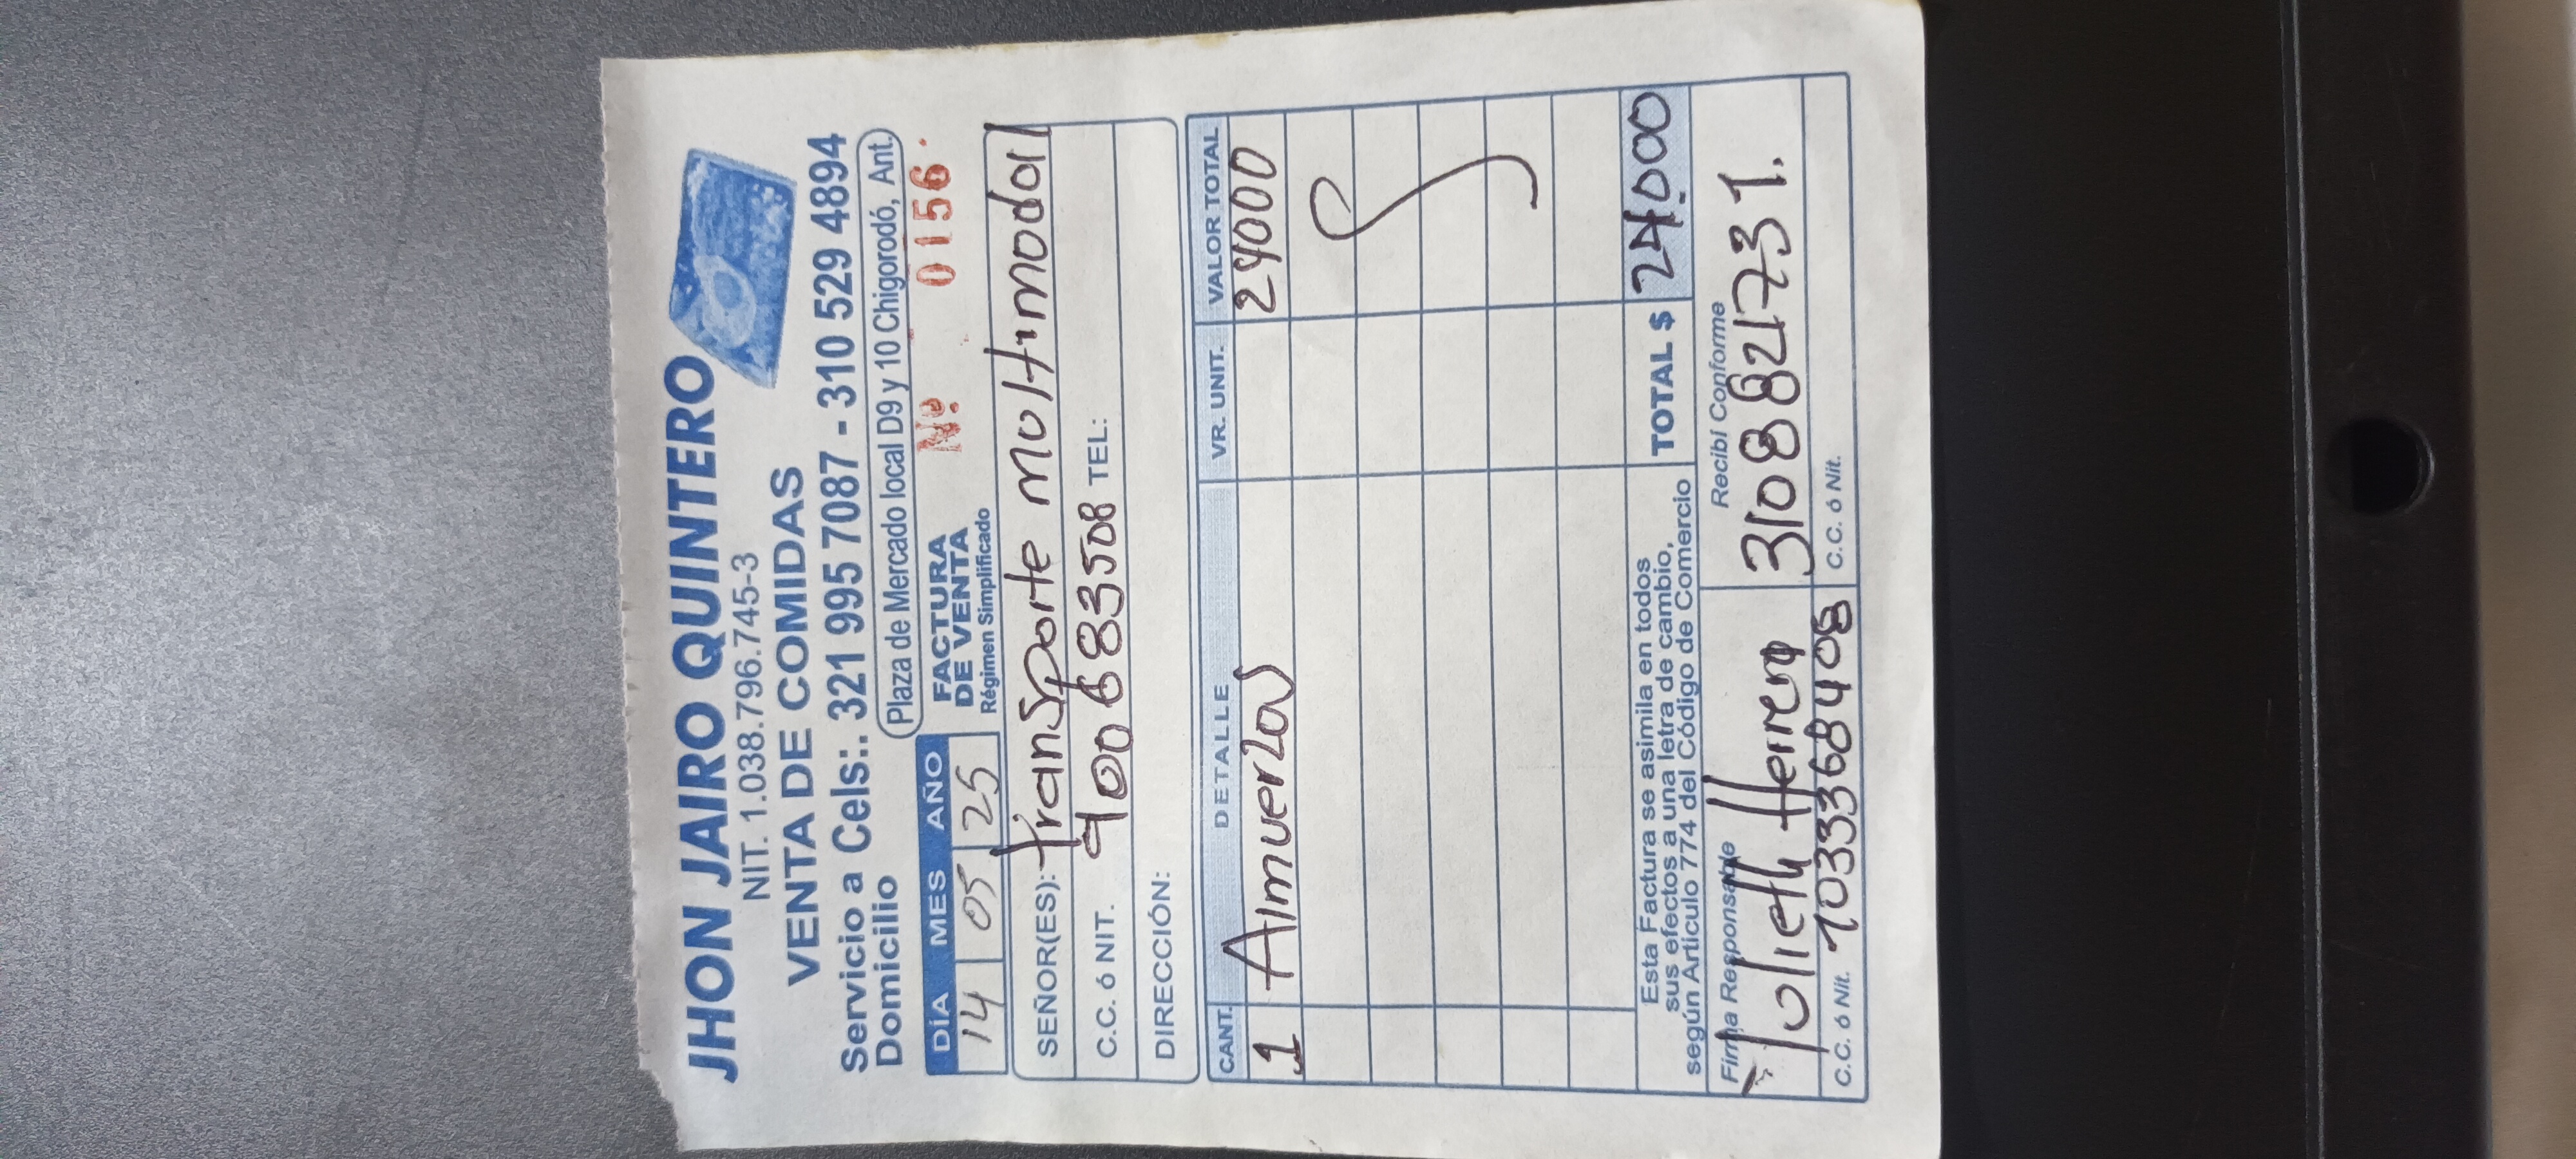 JHON JAIRO QUINTERO
NIT. 1.038.796.745-3
VENTA DE COMIDAS
Servicio a Domicilio Cels:. 321 995 7087 - 310 529 4894
Plaza de Mercado local D9 y 10 Chigorodó, Ant.
DÍA MES AÑO
14 05 25
FACTURA
DE VENTA
Régimen Simplificado
Nº 0156
SEÑOR(ES): transporte multimodal
C.C. ó NIT. 900683508 TEL:
DIRECCIÓN:
CANT. DETALLE VR. UNIT. VALOR TOTAL
1 Almuerzos 24000
Esta Factura se asimila en todos
sus efectos a una letra de cambio,
según Artículo 774 del Código de Comercio
TOTAL $ 24.000
Firma Responsable Recibí Conforme
Yulieth Herrera 3108821731.
C.C. ó Nit. 1033368408 C.C. ó Nit.